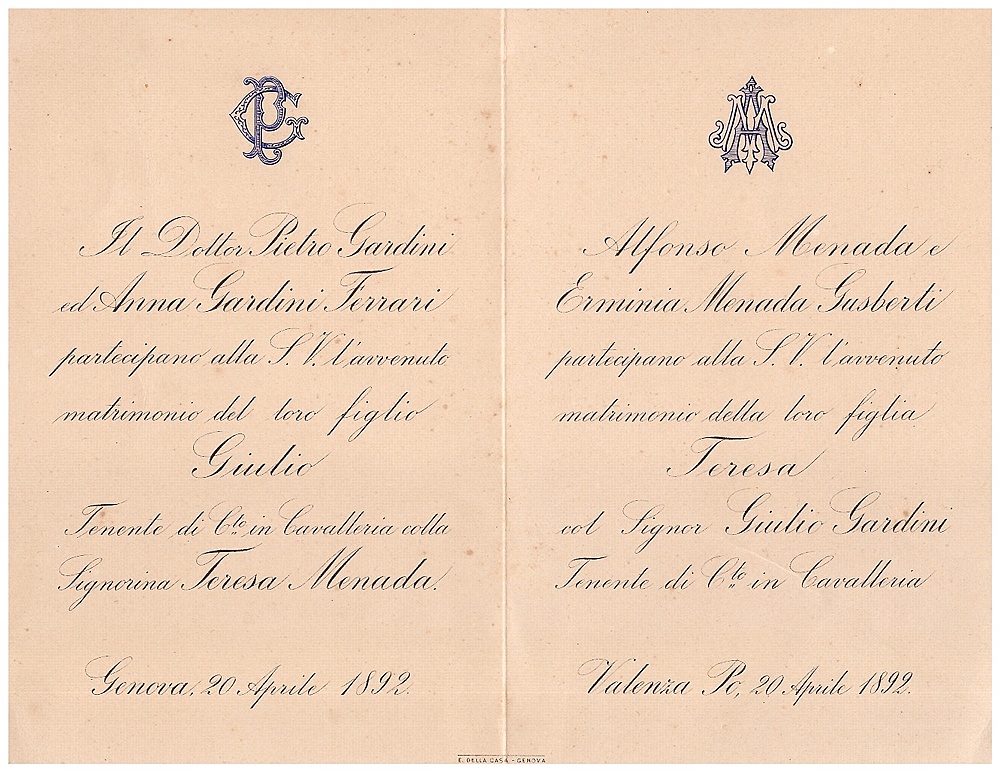 PG
Il Dottor Pietro Gardini
ed Anna Gardini Ferrari
partecipano alla S. V. l'avvenuto
matrimonio del loro figlio
Giulio
Tenente di C.to in Cavalleria colla
Signorina Teresa Menada.
Genova, 20 Aprile 1892.
AM
Alfonso Menada e
Erminia Menada Gusberti
partecipano alla S. V. l'avvenuto
matrimonio della loro figlia
Teresa
col Signor Giulio Gardini
Tenente di C.to in Cavalleria
Valenza Po, 20 Aprile 1892.
E. DELLA CASA - GENOVA